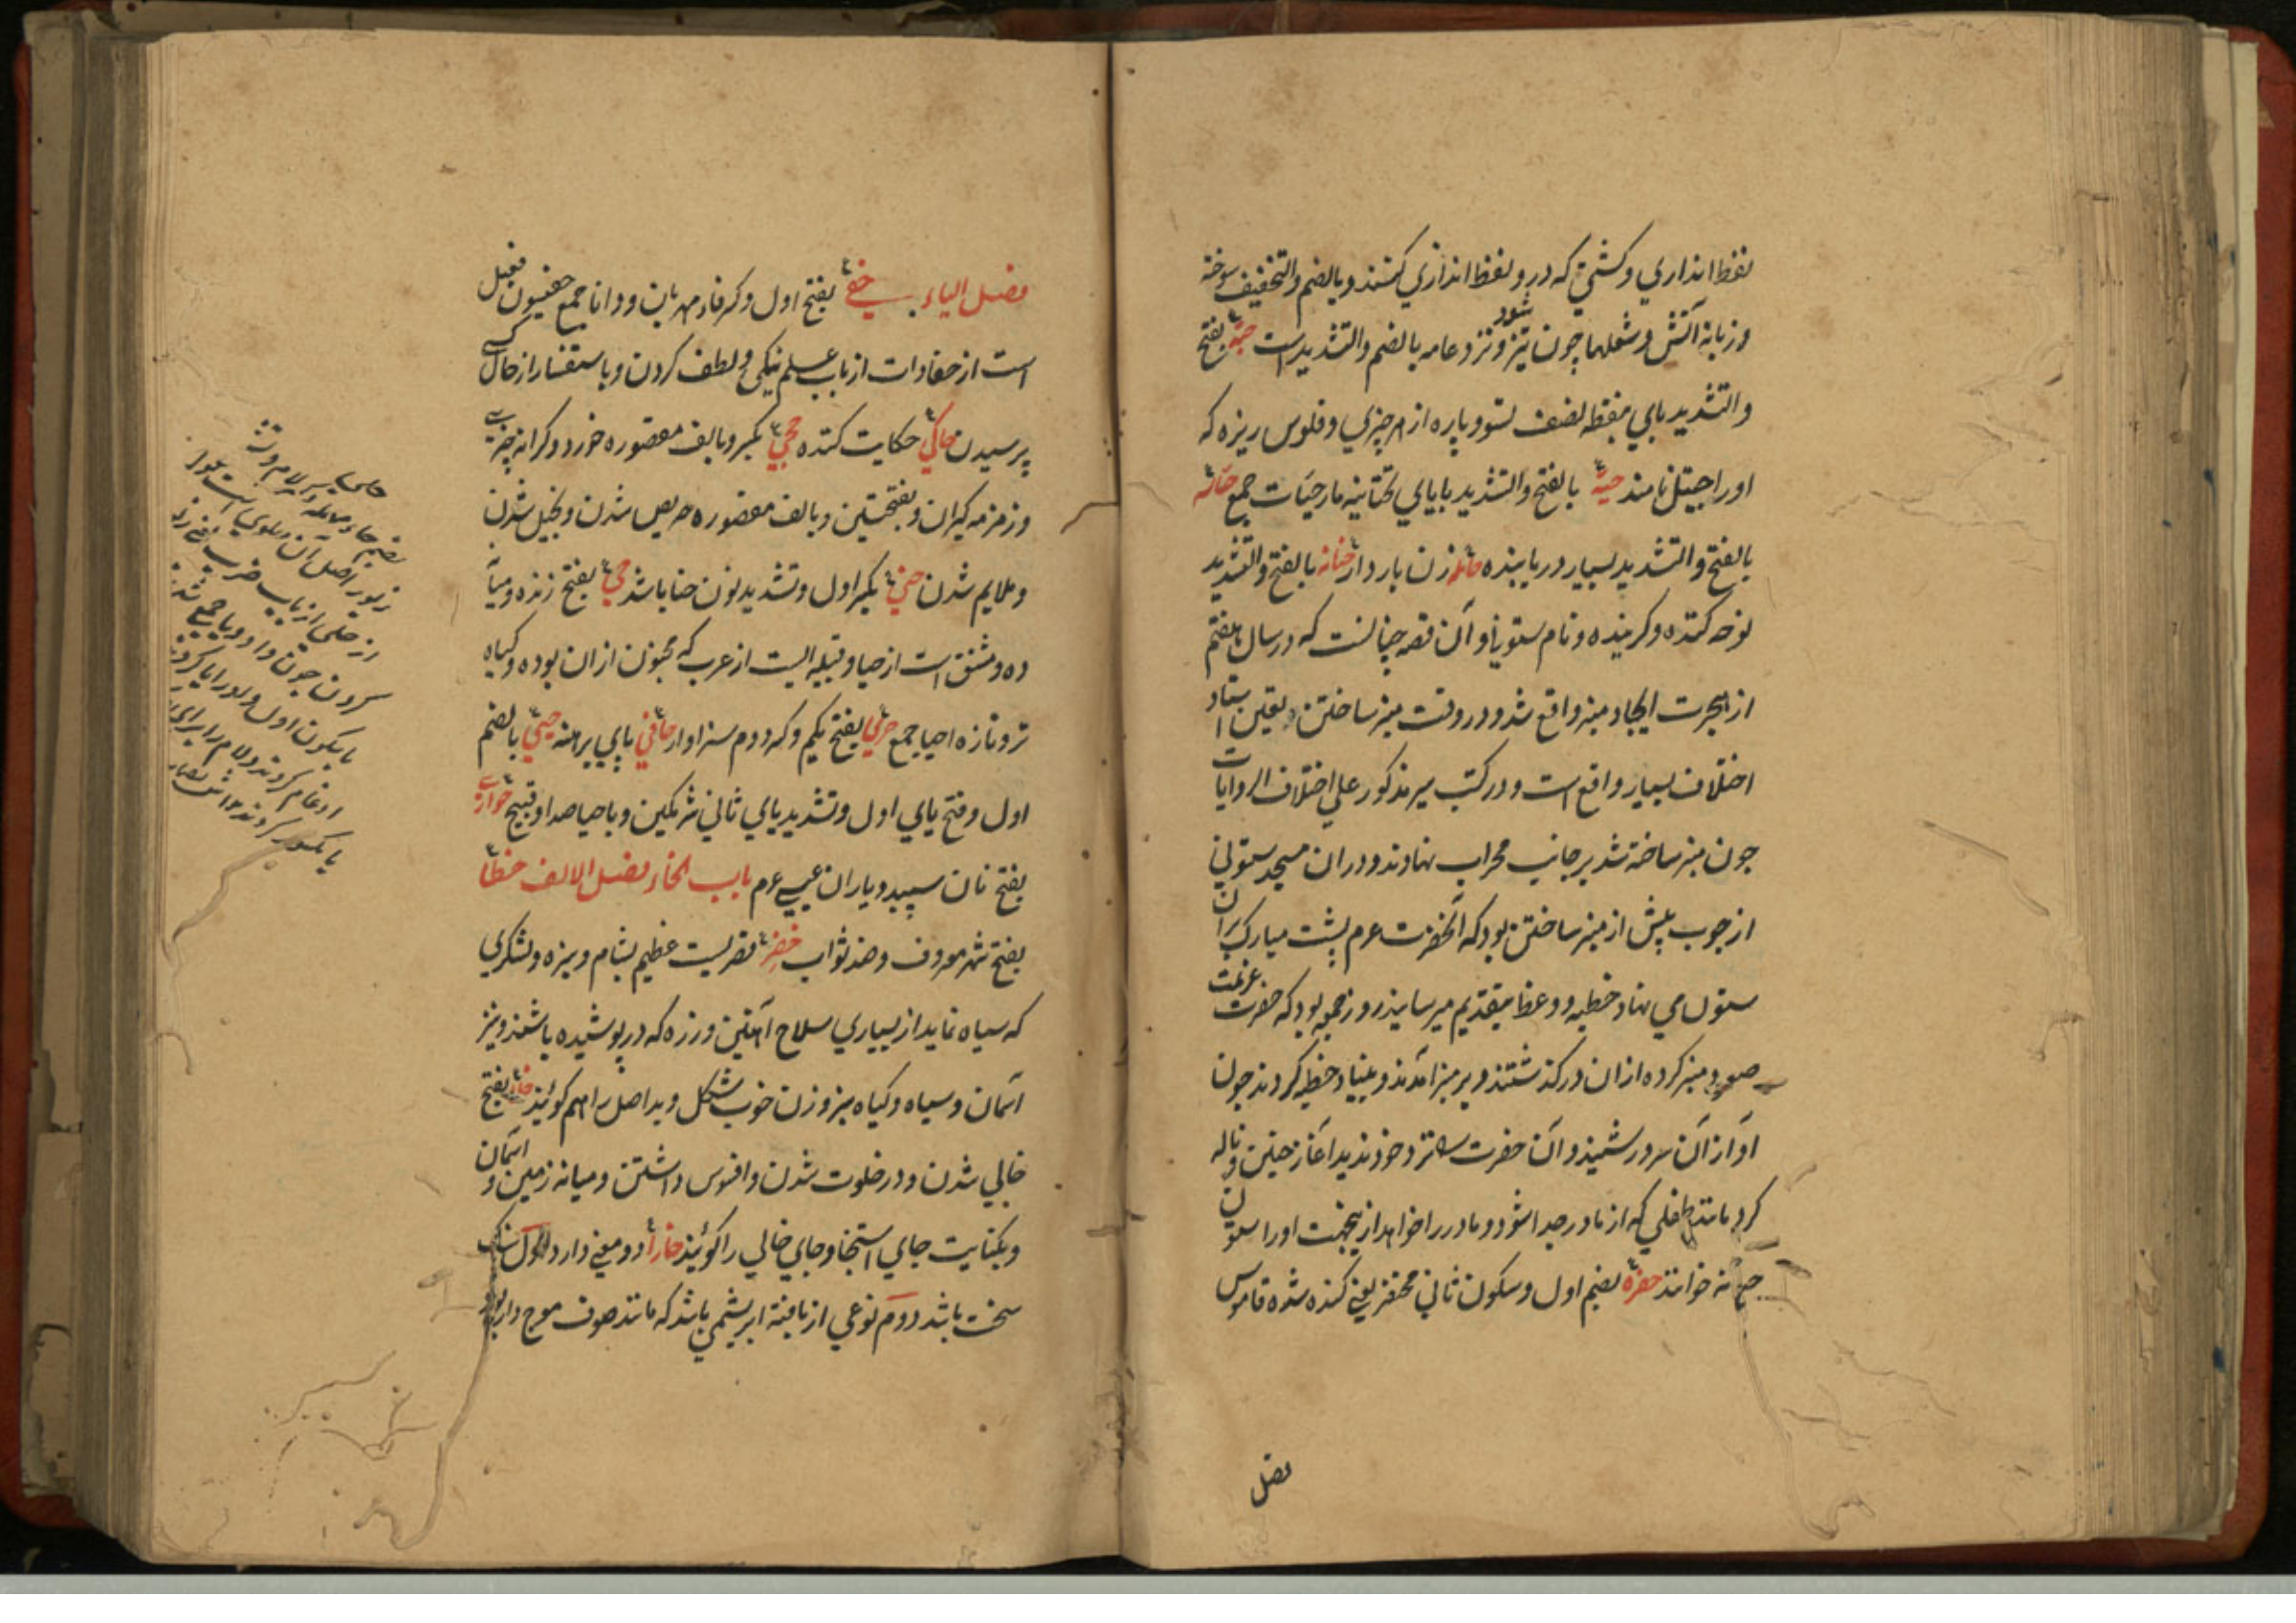 نفط اندازي و كشتي كه درو نفط اندازي كنند و بالضم والتخفيف سوخته
و زبانهٔ آتش و شعلها چون تيز شود و نزد عامه بالضم والتشديد است حبّه بفتح
والتشديد باي بنقطه نصف تسو و پاره از هر چيزي و فلوس ريزه كه
اورا جيتل نامند حيّة بالفتح والتشديد باياي تحتانيه مار حيّات جمع
بالفتح والتشديد بسيار دريابنده حامله زن باردار حنانه بالفتح والتشديد
نوحه كننده و كرينده و نام ستوني و آن قصه چنانست كه در سال هفتم
از هجرت ايجاد منبر واقع شد و در وقت منبر ساختن و تعين استاد
اختلاف بسيار واقع است و در كتب سير مذكور علي اختلاف الروايات
چون منبر ساخته شد بر جانب محراب نهادند و دران مسجد ستوني
از چوب پيش از منبر ساختن بود كه آنحضرت عم پشت مبارك بران
ستون مي نهاد و خطبه و وعظ بتقديم ميرسانيد روز جمعه بود كه حضرت عزيمت
صعود منبر كرده ازان در كذشتند و بر منبر آمدند و بنياد خطبه كردند چون
آواز آن سرور شنيد و آن حضرت را نزد خود نديد آغاز حنين و ناله
كرد مانند طفلي كه از مادر جدا شود و مادر را خواهد ازينجهت اورا ستون
حنانه خوانند حفره بضم اول و سكون ثاني محتفر يعني كنده شده قاموس
فصل
فصل الياء حفي بفتح اول و كسر فاء مهربان و دانا جمع حفيون فعيل
است از حفاوات از باب علم نيكي و لطف كردن و باستقسار از حال كسي
پرسيدن حاكي حكايت كننده حجي بكسر و بالف مقصوره خرد و كرانه چيزي
و زمزمه كبران و بفتحتين و بالف مقصوره حريص شدن و بخيل شدن
و ملايم شدن حني بكسر اول و تشديد نون حنا باشد حي بفتح زنده و ميا
ده و مشتق است از حيا و قبيله ايست از عرب كه مجنون ازان بوده و كياه
تر و تازه احيا جمع حري بفتح يكم و كسر دوم سزاوار حافي پاي برهنه حيي بالضم
اول و فتح ياي اول و تشديد ياي ثاني شرمكين و باحيا صد او قبيح حواري
بفتح نان سپيد و ياران عيسي عم باب الخاء فصل الالف خطا
بفتح شهر معروف و ضد ثواب خضرا قصريست عظيم بشام و سبزه و لشكري
كه سياه نمايد از بسياري سلاح آهنين و زره كه در پوشيده باشند و نيز
آسمان و سياه و كياه سبز و زن خوب شكل و بد اصل را هم كويند خلا بفتح
خالي شدن و در خلوت شدن و افسوس داشتن و ميانه زمين و آسمان
و بكنايت جاي استنجا و جاي خالي را كويند خارا دو معني دارد اول سنك
سخت باشد دوم نوعي از بافته ابريشمي باشد كه مانند صوف موج دار بود
بضم حاء مهمله
از باب ضرب يعني زيور
كردن چون واو و يا جمع شدند
ادغام كردند و لام را براي